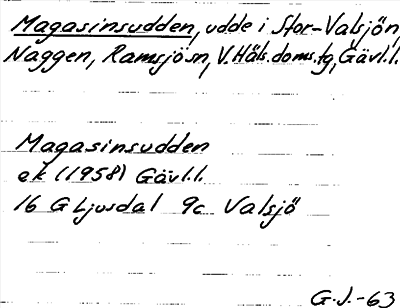 Magasinsudden, udde i Stor-Valsjön,
Naggen, Ramsjösn, V. Häls. doms.tg, Gävl.l.
Magasinsudden
ek (1958) Gävl.l.
16 G Ljusdal 9c Valsjö
G.J.-63